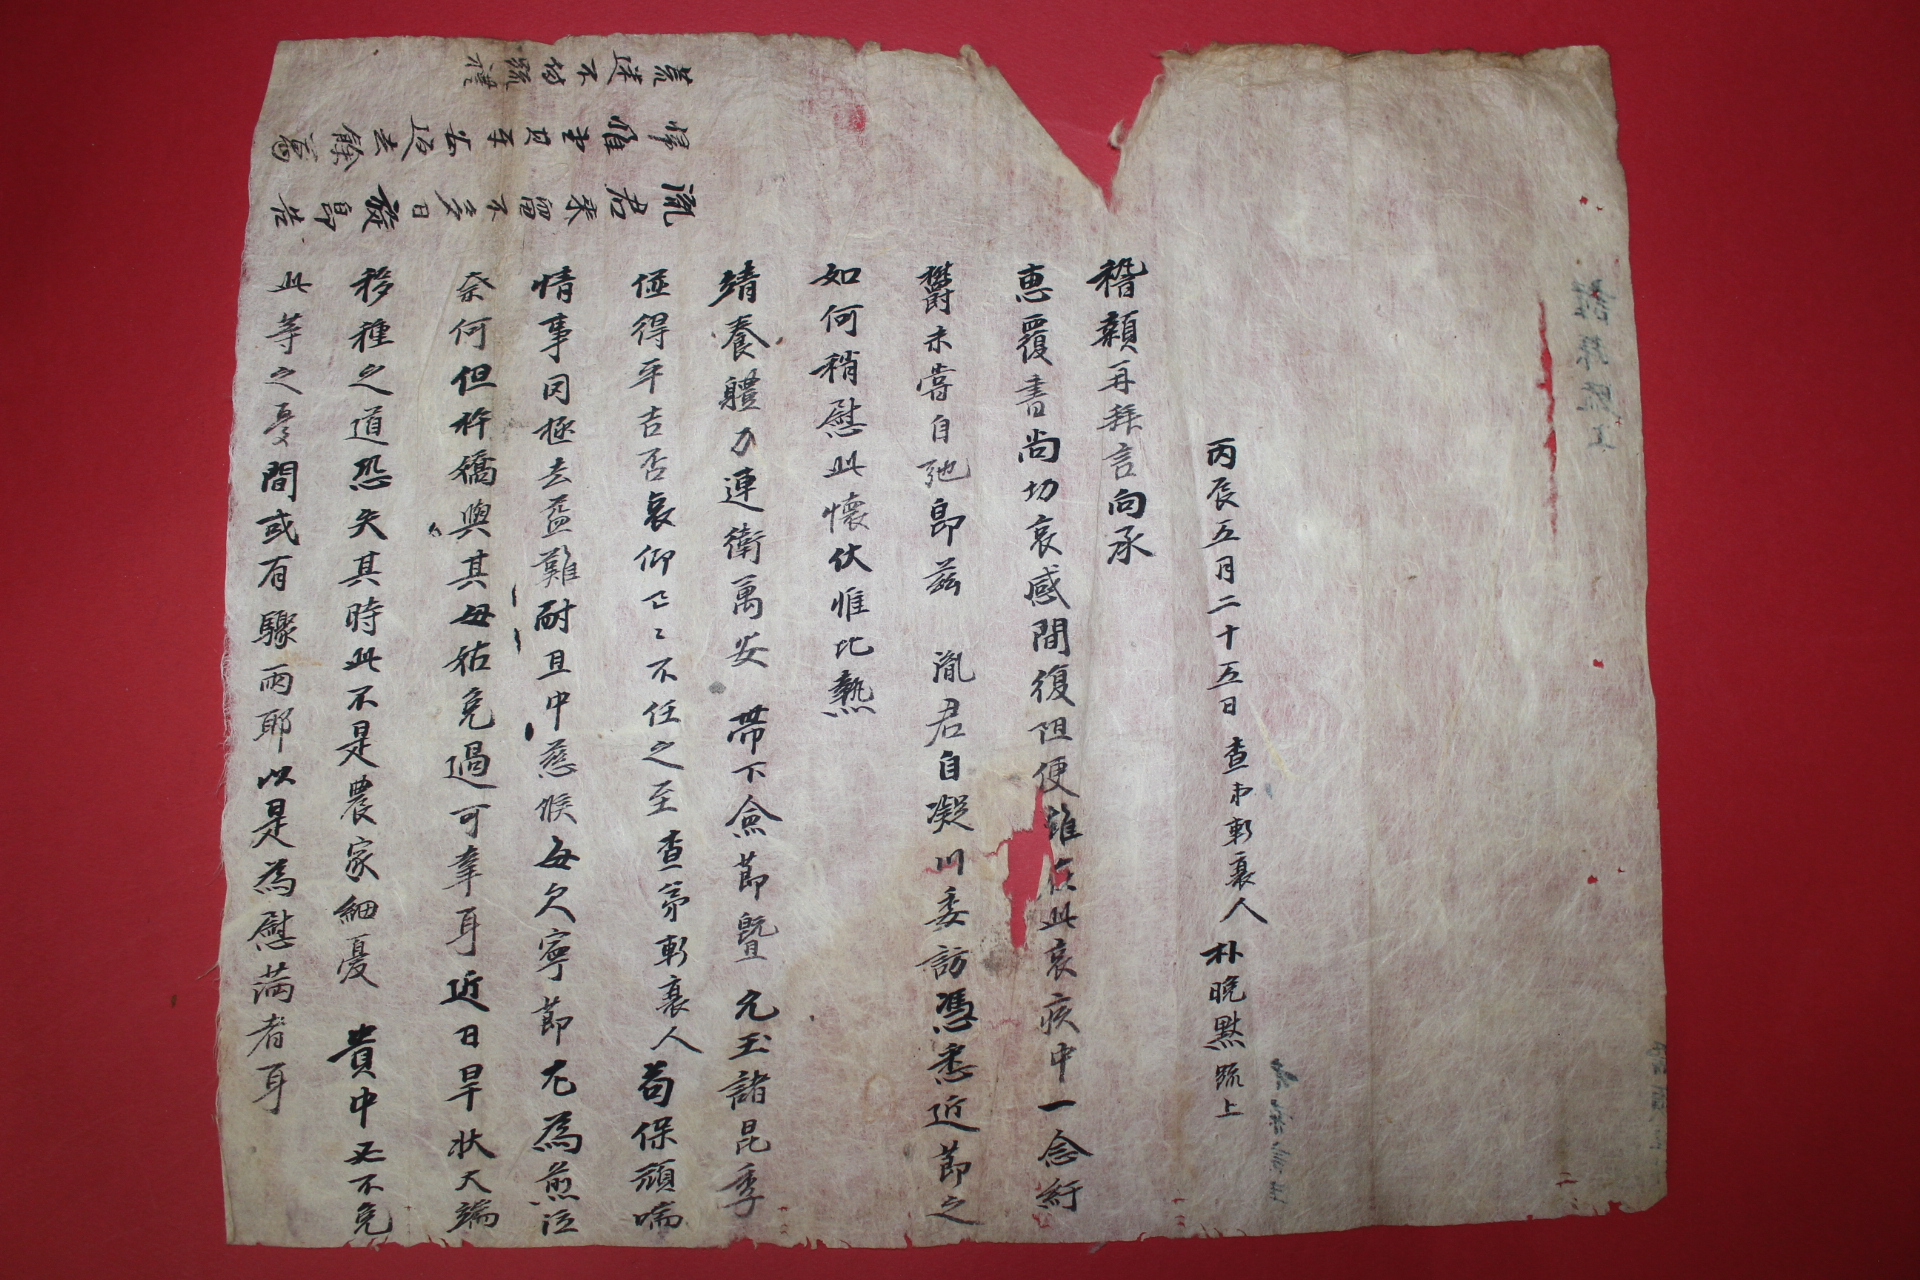 稽顙再拜言向承
惠覆書尚切哀感間復阻便雖在此哀疚中一念紆
欝未嘗自弛卽玆 胤君自凝川委訪憑悉近節之
如何稍慰此懷伏惟比熱
靖養體力連衛萬安 帶下僉節曁 允玉諸昆季
俱得平吉否哀仰〻〻不任之至查弟斬衰人苟保頑喘
情事罔極去益難耐且中慈候每欠寧節尤為煎泣
奈何但 嬌與其母姑免過可幸耳近日旱状大端
移種之道恐失其時此不是農家細憂 貴中又不免
此等之憂間或有驟雨耶以是為慰滿者耳
胤君来留不多日發卽告
悵雖 其平安返去餘萬
荒迷不備疏禮
丙辰五月二十五日 查弟斬衰人 朴晩默疏上